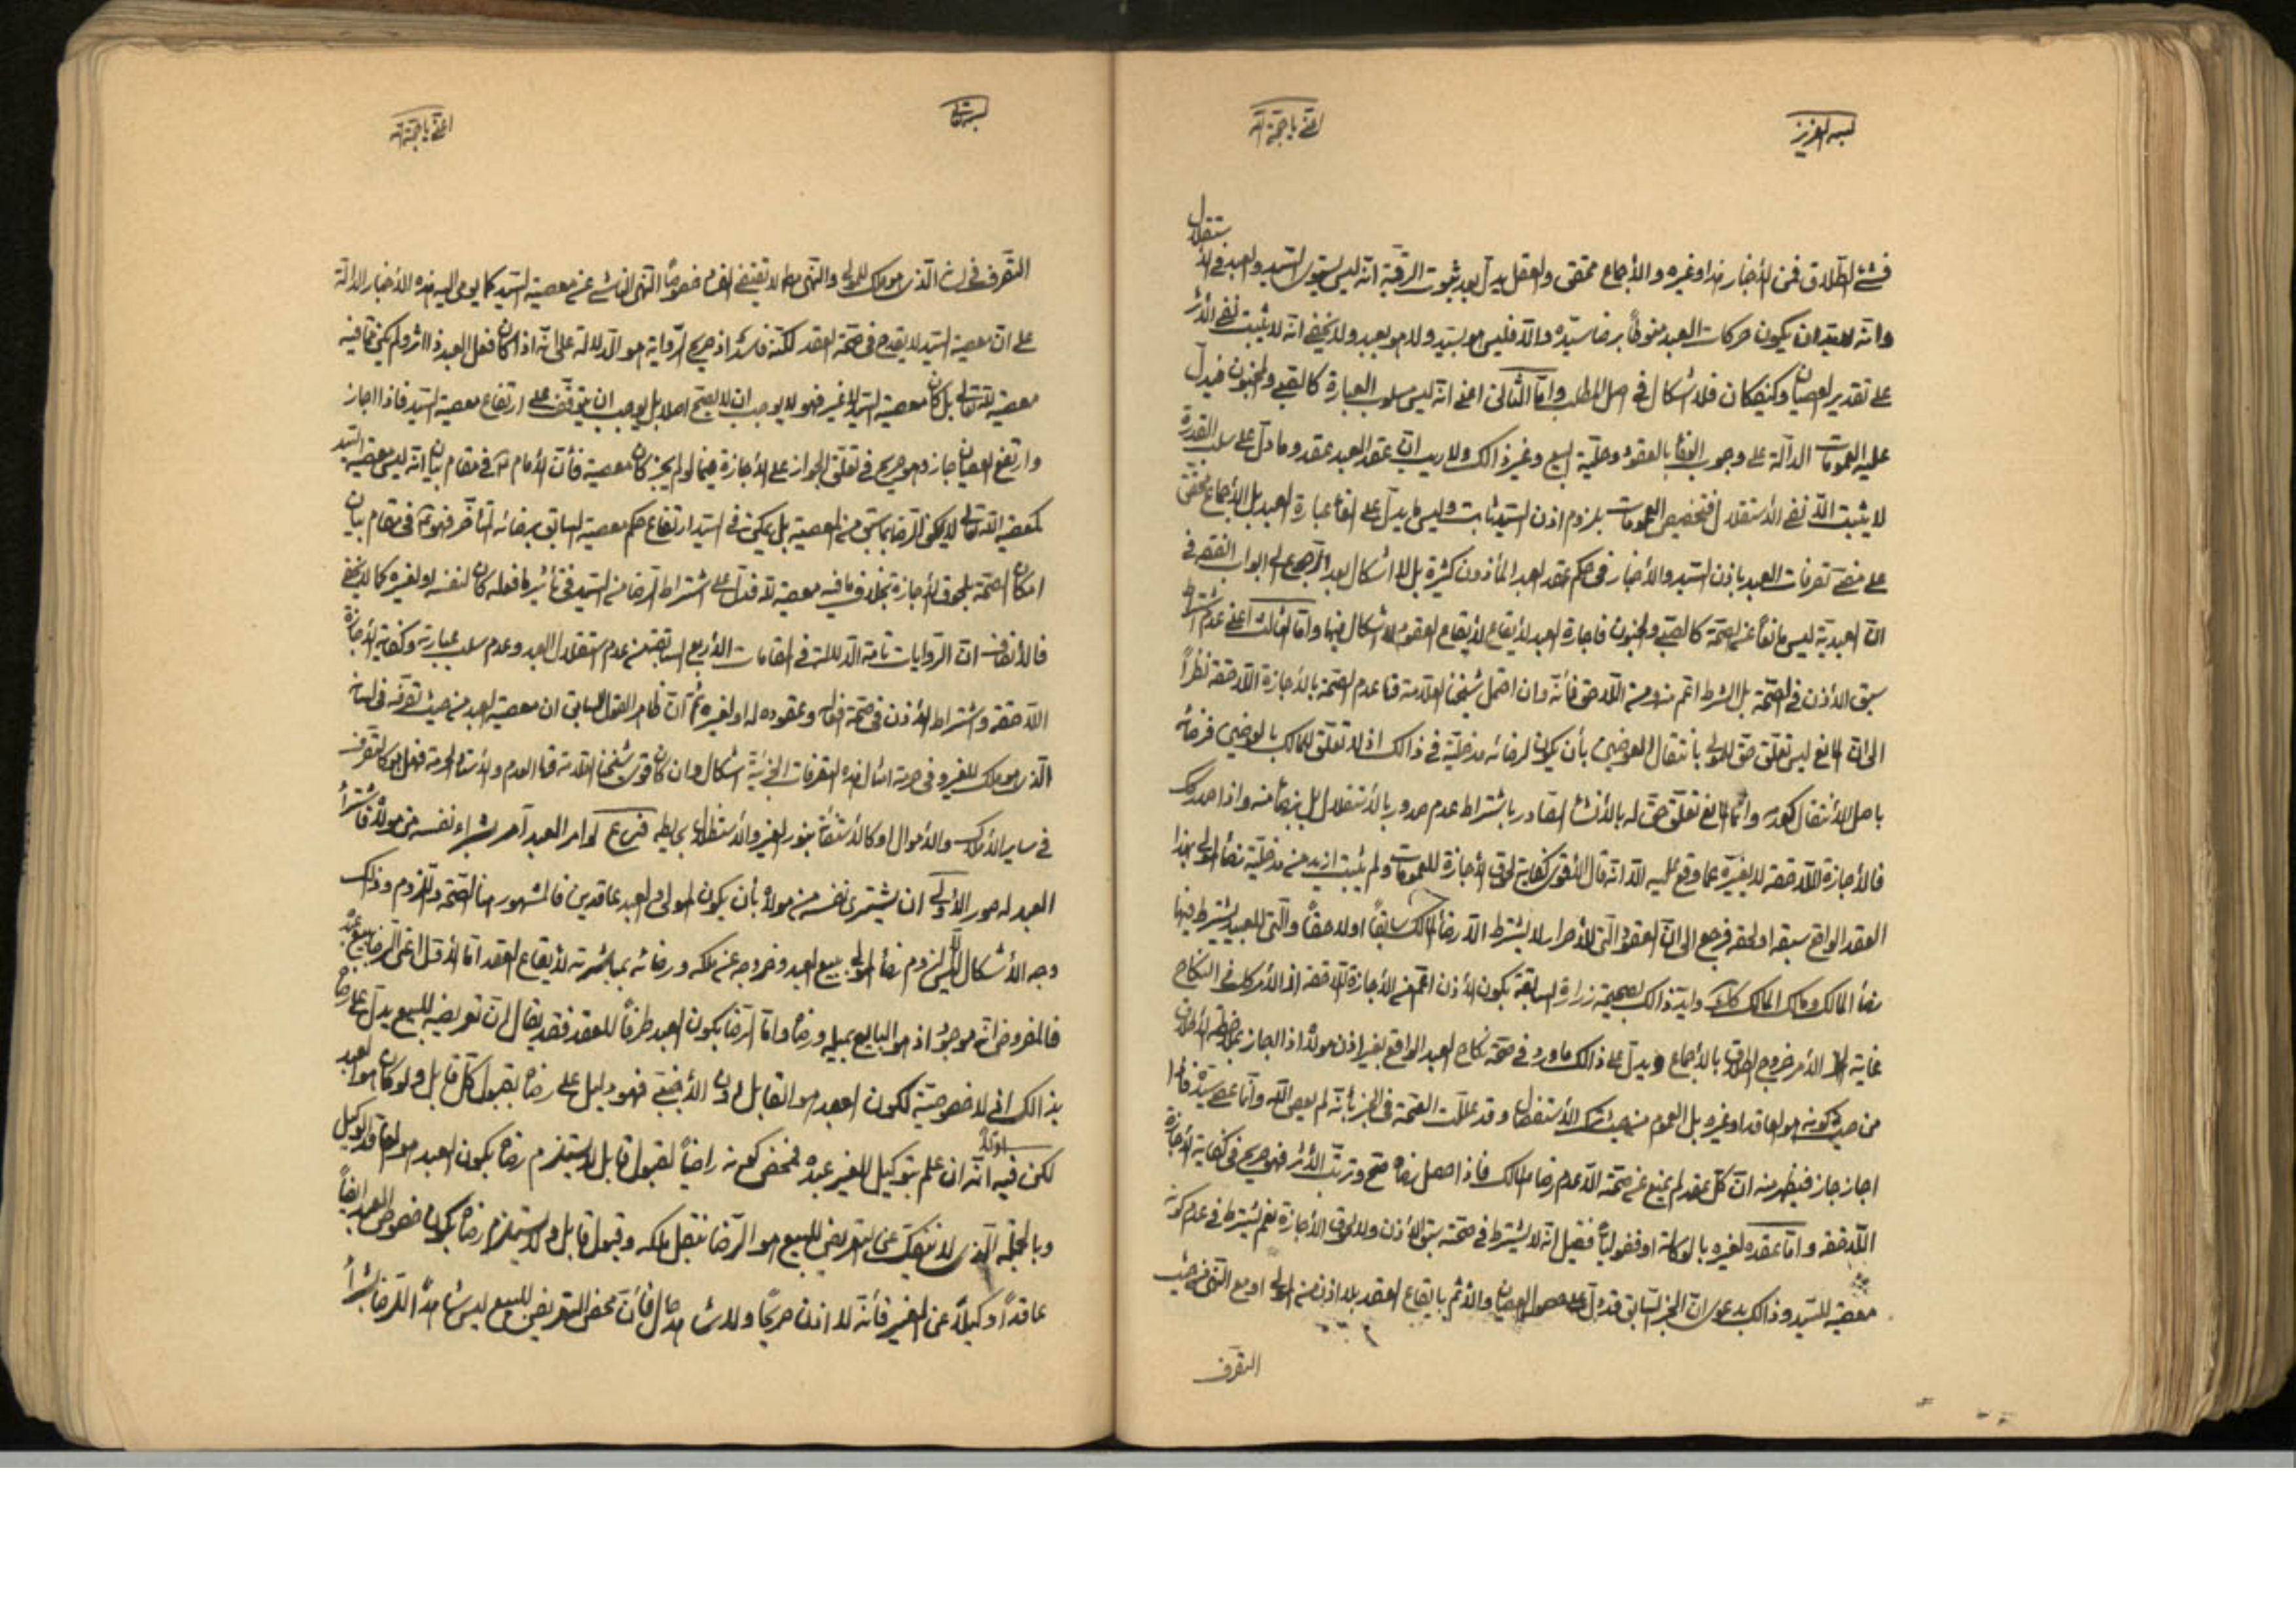 بسمه العزيز
اغثني يا حجة الله
ستقلال
فشئ الطلاق فمن الأخبار هذا وغيره والأجماع محقق والعقل يدل بعد ثبوت الرقية انه ليس يستوى السيد والعبد في الأ
وانه لابد ان يكون حركات العبد منوطاً برضا سيده والا فليس هو بسيد ولا هو بعبد ولا يخفى انه لا يثبت نفى الأثر
على تقدير العصيان وكيفكان فلا اشكال في اصل المطلب واما الثانى اعنى انه ليس مسلوب العبارة كالصبى والمجنون فيدل
عليه العمومات الدالة على وجوب الوفاء بالعقود وحلية البيع وغير ذالك ولا ريب ان عقد العبد عقد وما دل على سلب القدرة
لا يثبت الا نفى الأستقلال فتخصيص العمومات بلزوم اذن السيد ثابت وليس ما يدل على الغاء عبارة العبد بل الأجماع محقق
على مضى تصرفات العبد باذن السيد والأخبار فى حكم عقد العبد المأذون كثيرة بل لا اشكال بعد الرجوع الى ابواب الفقه فى
ان العبدية ليس مانعاً عن الصحة كالصبى والمجنون فاجارة العبد لأيقاع العقود لا اشكال فيها واما الثالث اعنى عدم اشتراط
سبق الأذن في الصحة بل الشرط اعم منه ومن اللاحق فأنه وان احتمل شيخنا العلامة قده عدم الصحة بالأجازة اللاحقة نظراً
الى ان المانع ليس تعلق حق المولى بانتقال العوضين بأن يكون لرضائه مدخلية في ذالك اذ لا تعلق للمالك بالعوضين فرضائه
باصل الأنتقال كعدمه وانما المانع تعلق حق له بالأنشاء الصادر باشتراط عدم صدوره بالأستقلال بل برضا منه واذا صدر كـ
فالأجازة اللاحقة لا يغيره عما وقع عليه الا انه قال الأقوى كفاية لحوق الأجازة للعمومات ولم يثبت ازيد من مدخلية رضا المولى بهذا
العقد الواقع سبقه او لحقه فرجع الى ان العقود التى للأحرار لا يشترط الا رضا المالك سابقاً او لاحقاً والتى للعبيد يشترط فيها
رضا المالك ومالك المالك كذلك وايد ذالك بصحيحة زرارة السابقة بكون الأذن اعم من الأجازة اللاحقة اذ الأمر كك فى النكاح
غاية الأمر خروج الطلاق بالأجماع ويدل على ذالك ما ورد فى صحة نكاح العبد الواقع بغير اذن مولاه اذا اجاز
من حيث كونه هو العاقد او غيره بل العموم من حيث ترك الأستفصال وقد عللت الصحة فى الخبر بأنه لم يعص الله وانما عصى سيده فاذا
اجاز جاز فيظهر منه ان كل عقد لم يمنع عن صحته الا عدم رضا المالك فاذا حصل رضاه صح وترتب الأثر فهو صريح فى كفاية الأجازة
اللاحقة واما عقده لغيره بالوكالة او فضولياً فقيل انه لا يشترط فى صحته سبق الأذن ولا لحوق الأجازة نعم يشترط فى عدم كونه
معصية للسيد وذالك بدعوى ان الخبر السابق قد دل على حصول العصيان والأثم بايقاع العقد بلا اذن من المولى او مع النهى من حيث
التصرف
بسمه تعالى
اغثني يا حجة الله
التصرف فى لسانه الذى هو ملك للمولى والنهى مط لا تقتضى الفساد خصوصاً النهى الناشى عن معصية السيد كما يومى اليه هذه الأخبار الدالة
على ان معصية السيد لا يقدح فى صحة العقد لكنه فاسد اذ صريح الرواية هو الدلالة على انه اذا كان فعل العبد ذا اثر ولم يكن مما فيه
معصية لله تعالى بل كان معصية السيد لا غير فهو لا يوجب ان لا يصح اصلا بل يوجب ان يتوقف على ارتفاع معصية السيد فاذا اجاز
وارتفع العصيان جاز وهو صريح فى تعلق الجواز على الأجازة فيما لو لم يجز كان معصية فأن الأمام ع فى مقام بيان انه ليس معصية السيد
كمعصية الله تعالى لا يمكن الرضا بما سبق من المعصية بل يمكن فى السيد ارتفاع حكم معصية السابق برضائه المتأخر فهو ع فى مقام بيان
امكان الصحة بلحوق الأجازة بخلاف ما فيه معصية لله فدل على اشتراط الرضا من السيد فى تأثير ما فعله كان لنفسه او لغيره كما لا يخفى
فالأنصاف ان الروايات تامة الدلالة فى المقامات الأربع السابقة من عدم استقلال العبد وعدم سلب عبارته وكفاية الأجازة
اللاحقة واشتراط الأذن فى صحة افعاله وعقوده له او لغيره ثم ان ظاهر القول السابق ان معصية العبد من حيث تصرفه فى لسانه
الذى هو ملك للغير وفى حرمة امثال هذه التصرفات الجزئية اشكال وان كان قوى شيخنا العلامة قده العدم والأستاد الحرمة فهل هو كالتصرف
فى ساير الأملاك والأموال او كالأستضائة بنور الغير والأستظلال بحايطه فرع لو امر العبد آمر بشراء نفسه من مولاه فاشترا
العبد له صور الأولى ان يشترى نفسه من مولاه بأن يكون المولى والعبد عاقدين فالمشهور هنا الصحة واللزوم وذالك
وجه الأشكال ليس الا لزوم رضا المولى ببيع العبد وخروجه عن ملكه ورضائه بمباشرته لأيقاع العقد اما الأول اعنى الرضا ببيع عبده
فالمفروض انه موجود اذ هو البايع بميله ورضاه واما الرضا بكون العبد طرفاً للعقد فقد يقال ان تعريضه للبيع يدل على رضاه
بذالك اذ لا خصوصية لكون العبد هو القابل او الأجنبى فهو دليل على رضاه بقبول كل قابل ولو كان هو العبد
لكن فيه اولاً انه ان علم بتوكيل الغير عبده فمحض كونه راضياً لقبول قابل لا يستلزم رضاه بكون العبد هو العاقد الوكيل
وبالجملة الذى لا ينفك عن التعريض للبيع هو الرضا بنقل ملكه وقبول قابل ولا يستلزم رضاه بكون خصوص العبد ايضاً
عاقداً وكيلاً عن الغير فأنه لا اذن صريحاً ولا شاهد حال فأن محض التعريض للبيع ليس شاهداً للرضا بشراء